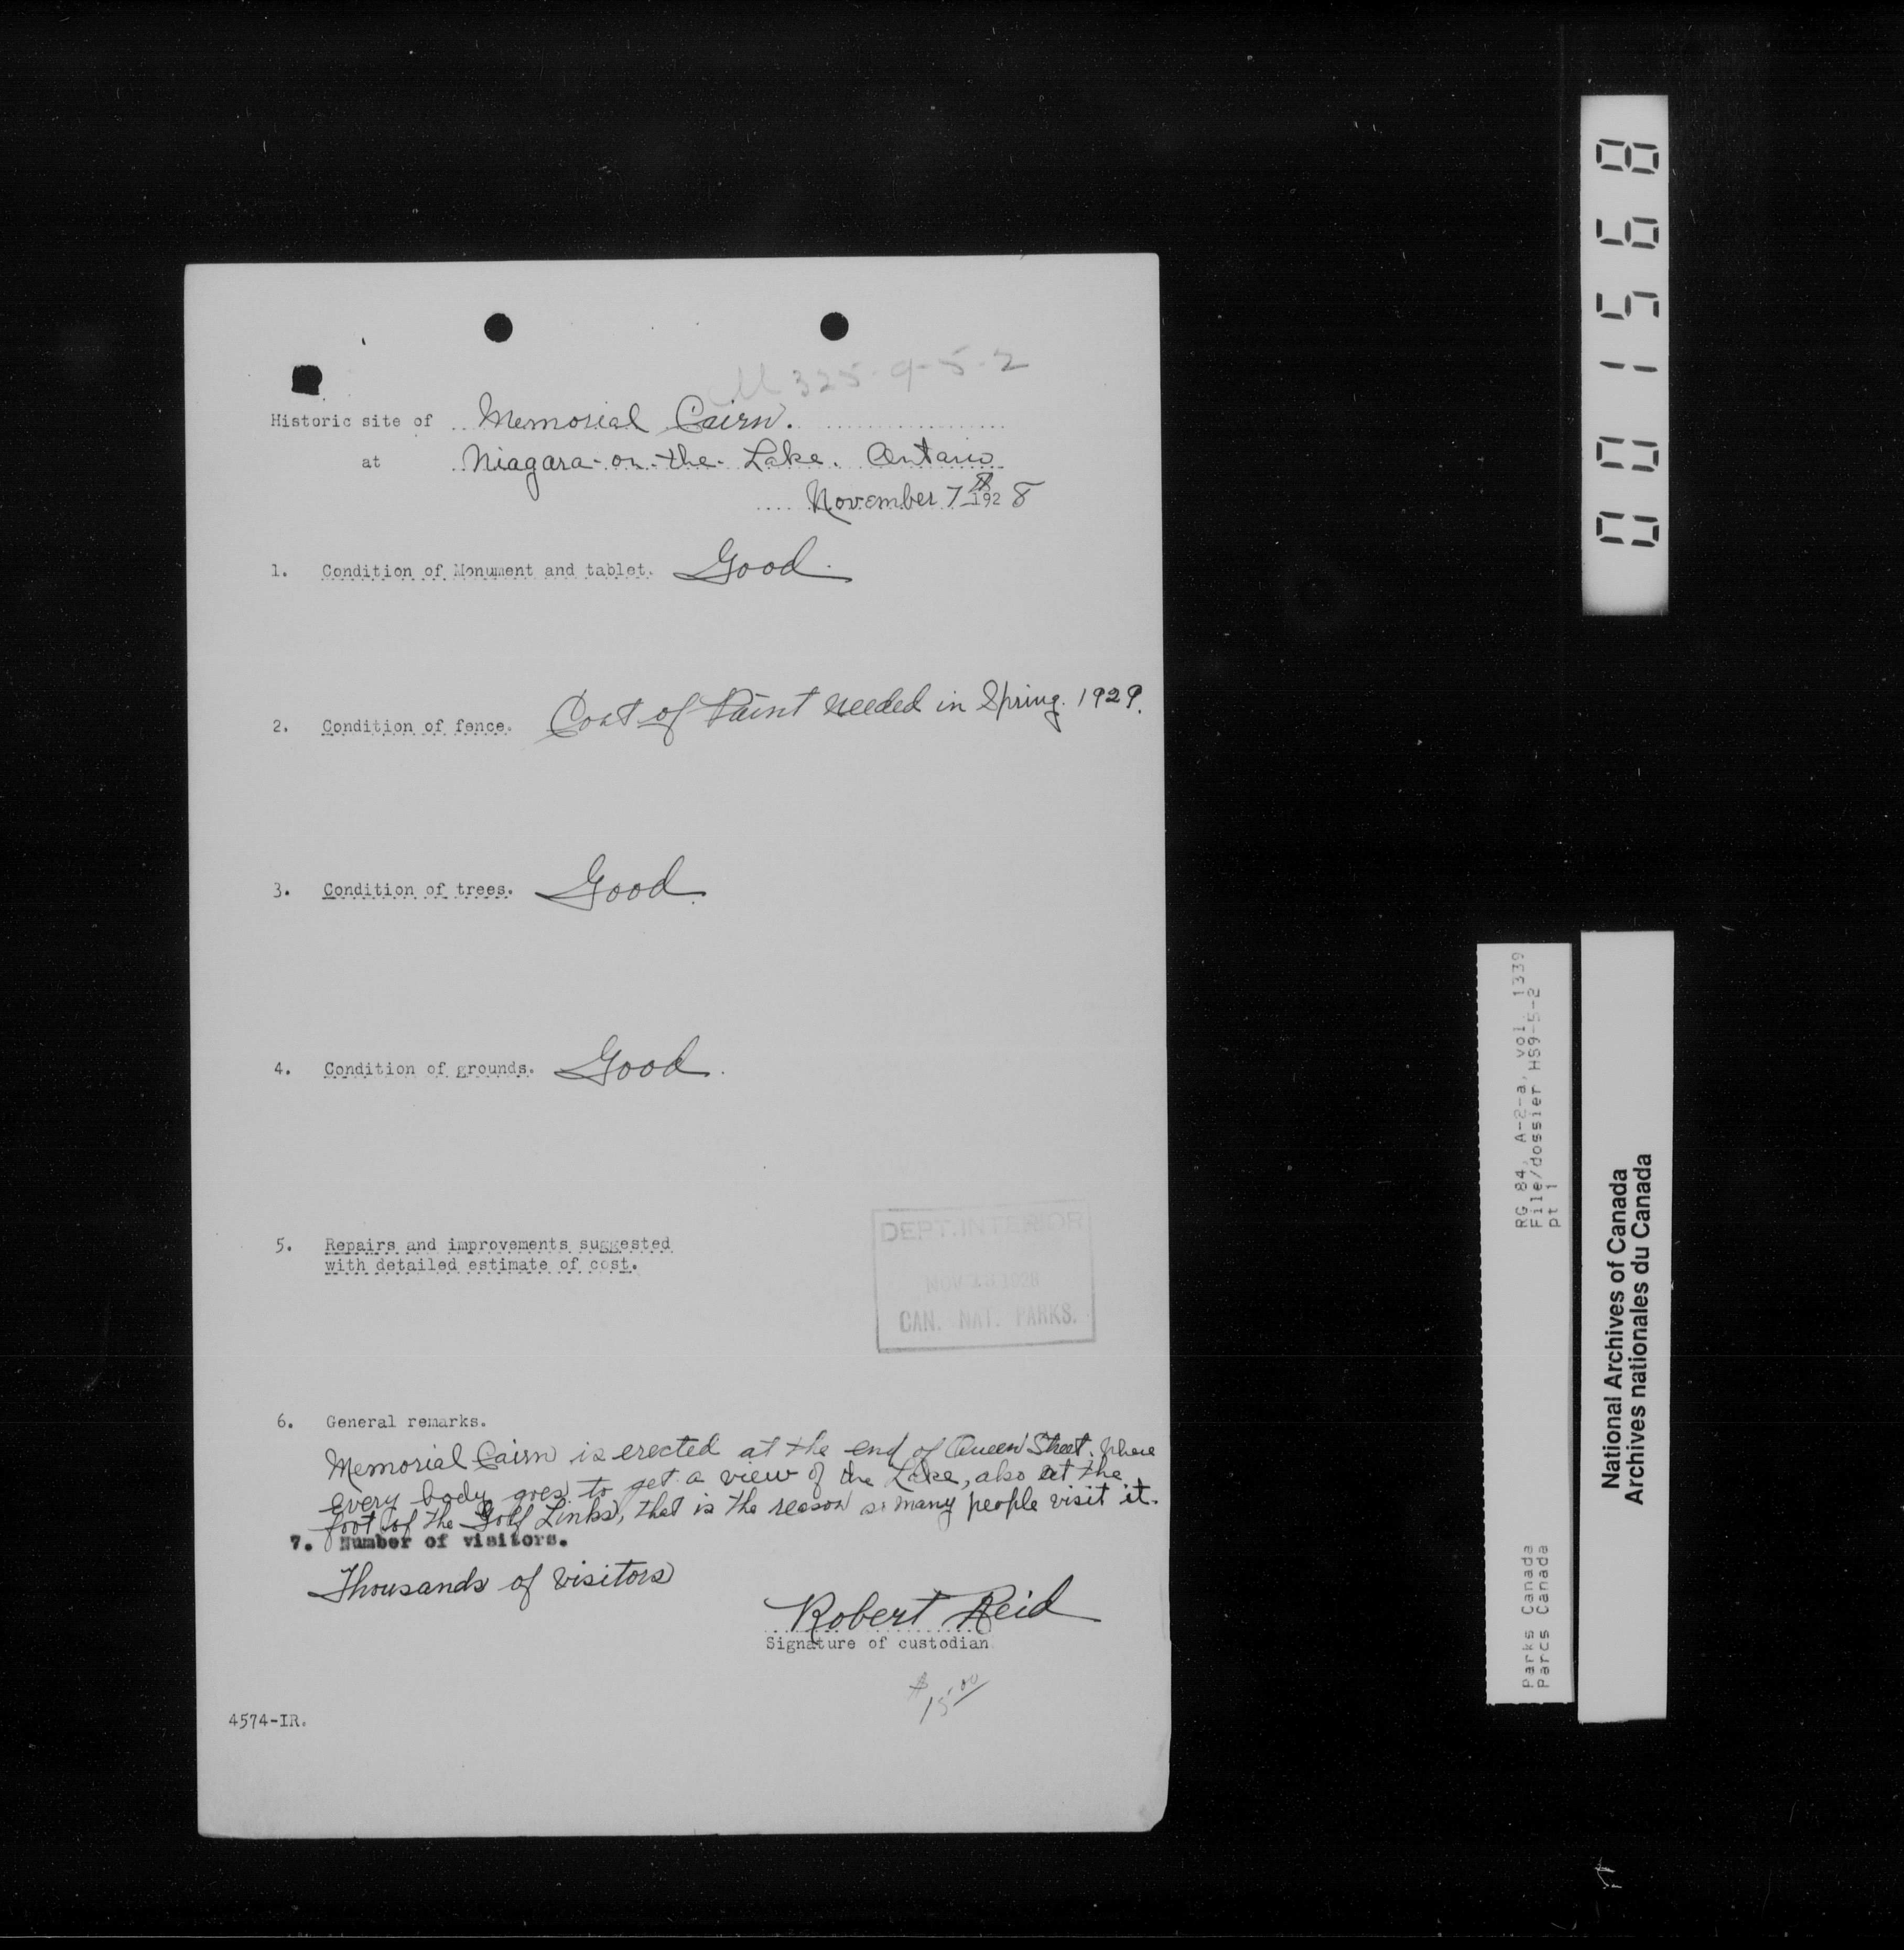 M 325-9-5-2
Historic site of Memorial Cairn.
at Niagara-on-the-Lake. Ontario
November 7th 1928
1. Condition of Monument and tablet. Good.
2. Condition of fence. Coat of Paint needed in Spring. 1929.
3. Condition of trees. Good.
4. Condition of grounds. Good.
5. Repairs and improvements suggested
with detailed estimate of cost.
DEPT. INTERIOR
NOV 23 1928
CAN. NAT. PARKS.
6. General remarks.
Memorial Cairn is erected at the end of Queen Street. Where
every body goes to get a view of the Lake, also at the
foot of the Golf Links, that is the reason so many people visit it.
7. Number of visitors.
Thousands of visitors
Robert Reid
Signature of custodian
$15.00
4574-IR.
0001568
RG 84, A-2-a, vol. 1339
File/dossier HS9-5-2
pt 1
Parks Canada
Parcs Canada
National Archives of Canada
Archives nationales du Canada